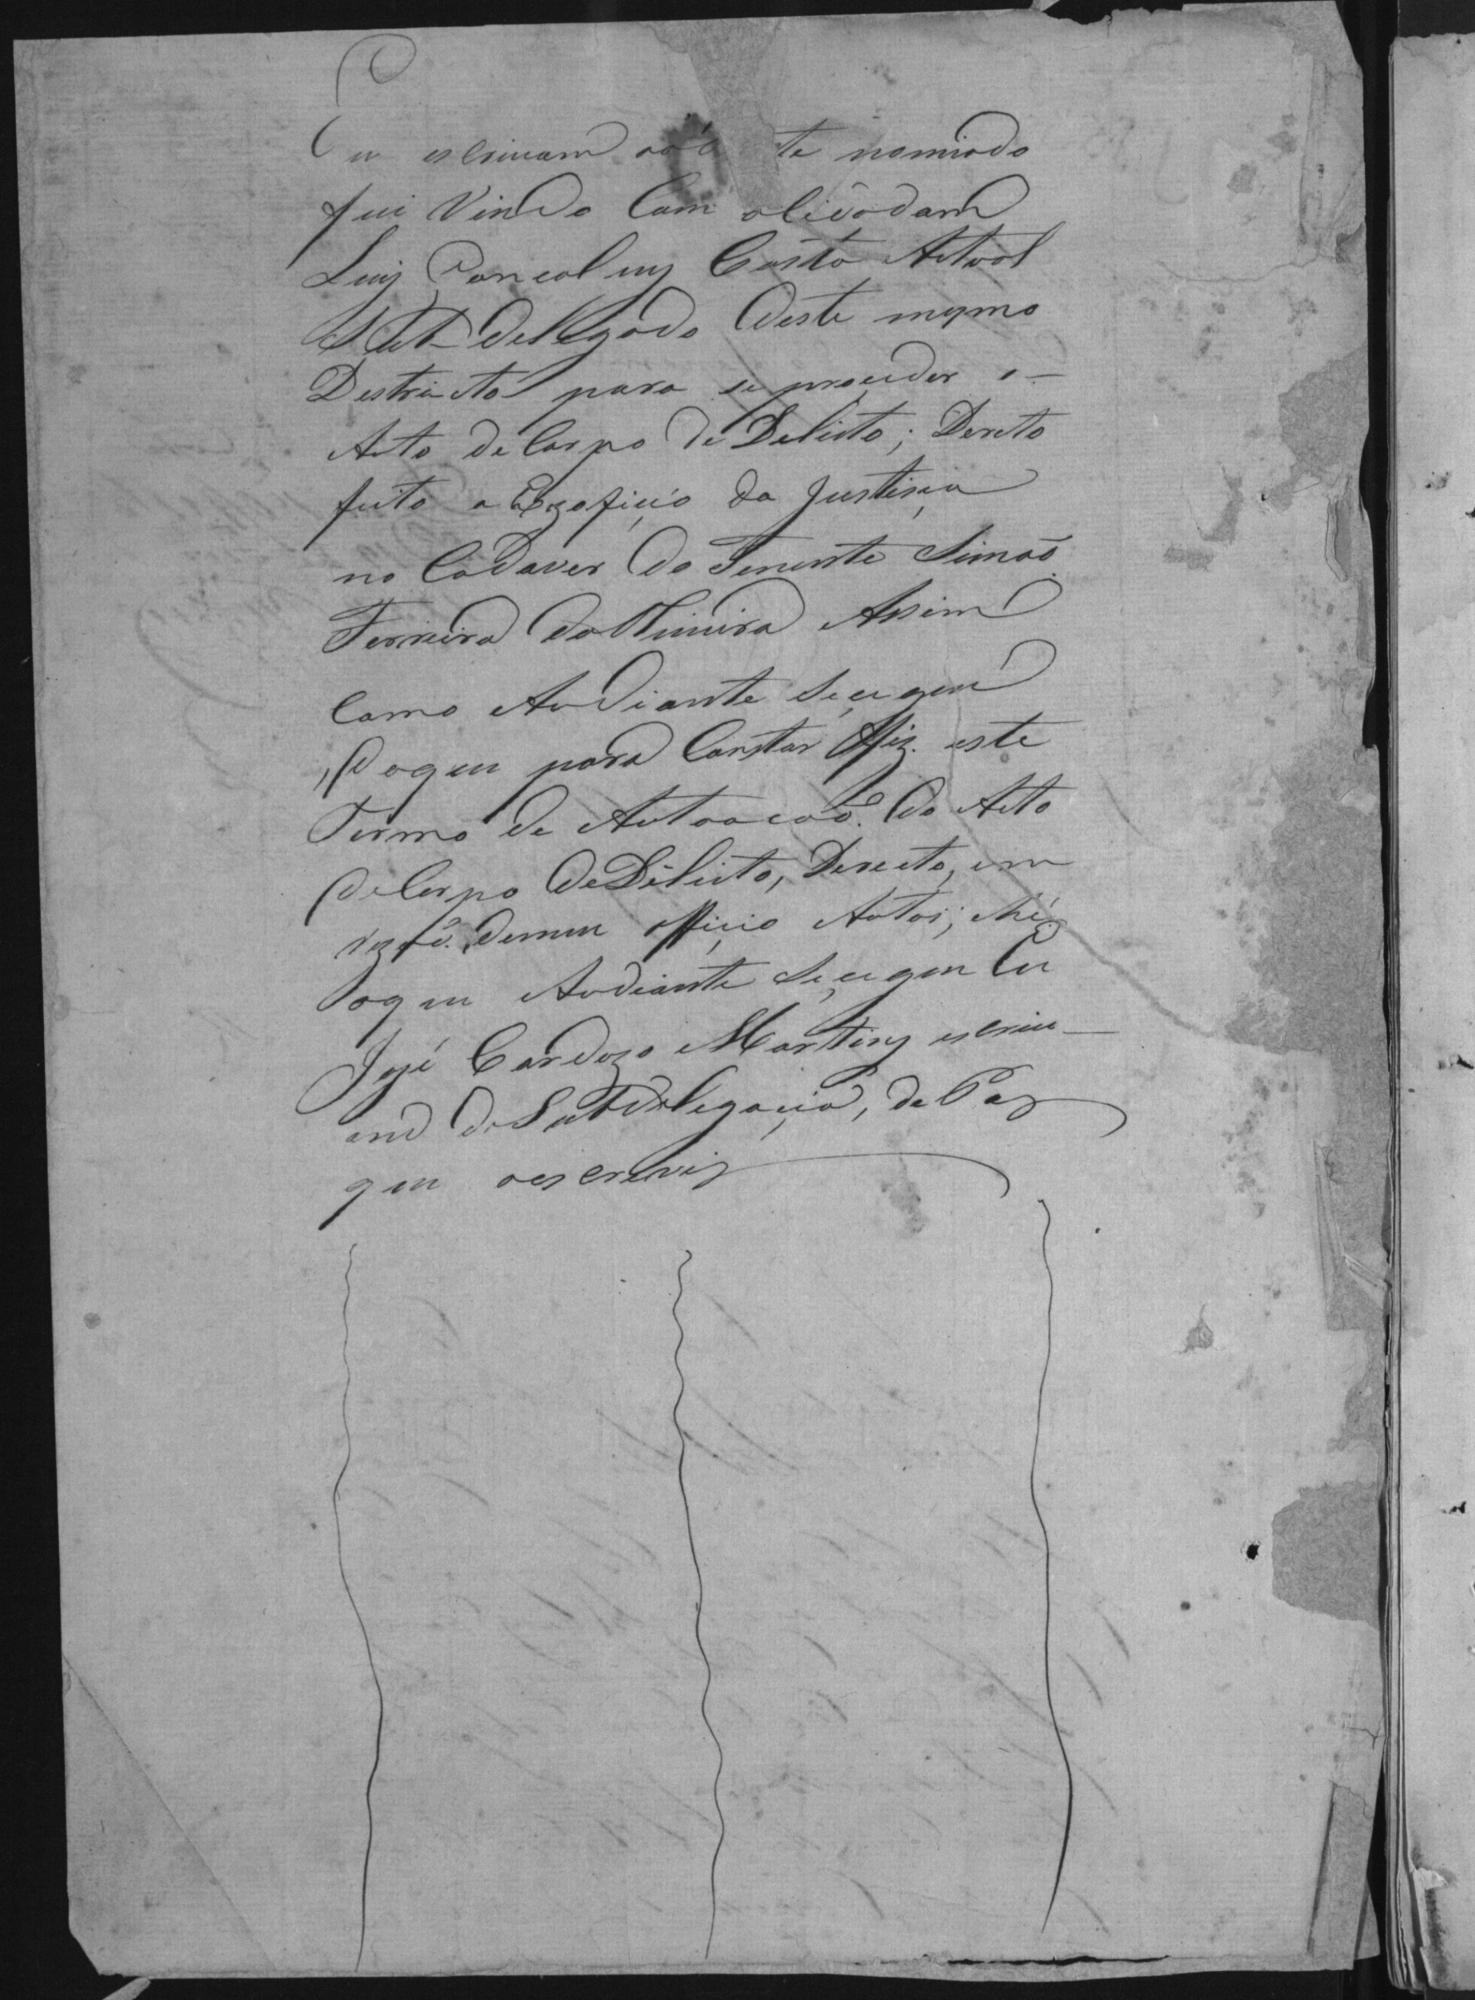 Eu escrivam te nomiado
fui Vindo Com o Cidodam
Luiz Goncolvez Costa Actual
Sub Delegado deste mesmo
Destricto para se proceder o
Auto de Corpo de Delicto; Dereto
feito a Exoficio da Justissa
no Cadaver do Tenente Simaõ
Ferreira de Oliveira Assim
Como Audiante Se ce que
Do que para Constar fiz este
Termo de Autoacaõ do Auto
de Corpo de Delicto, Dereeto, em
de meu officio Autoi;
o que Audiante Se ce gue Eu
José Cardozo Martins escriu-
am da Sub Delegacia, de Paz
que o escreviz